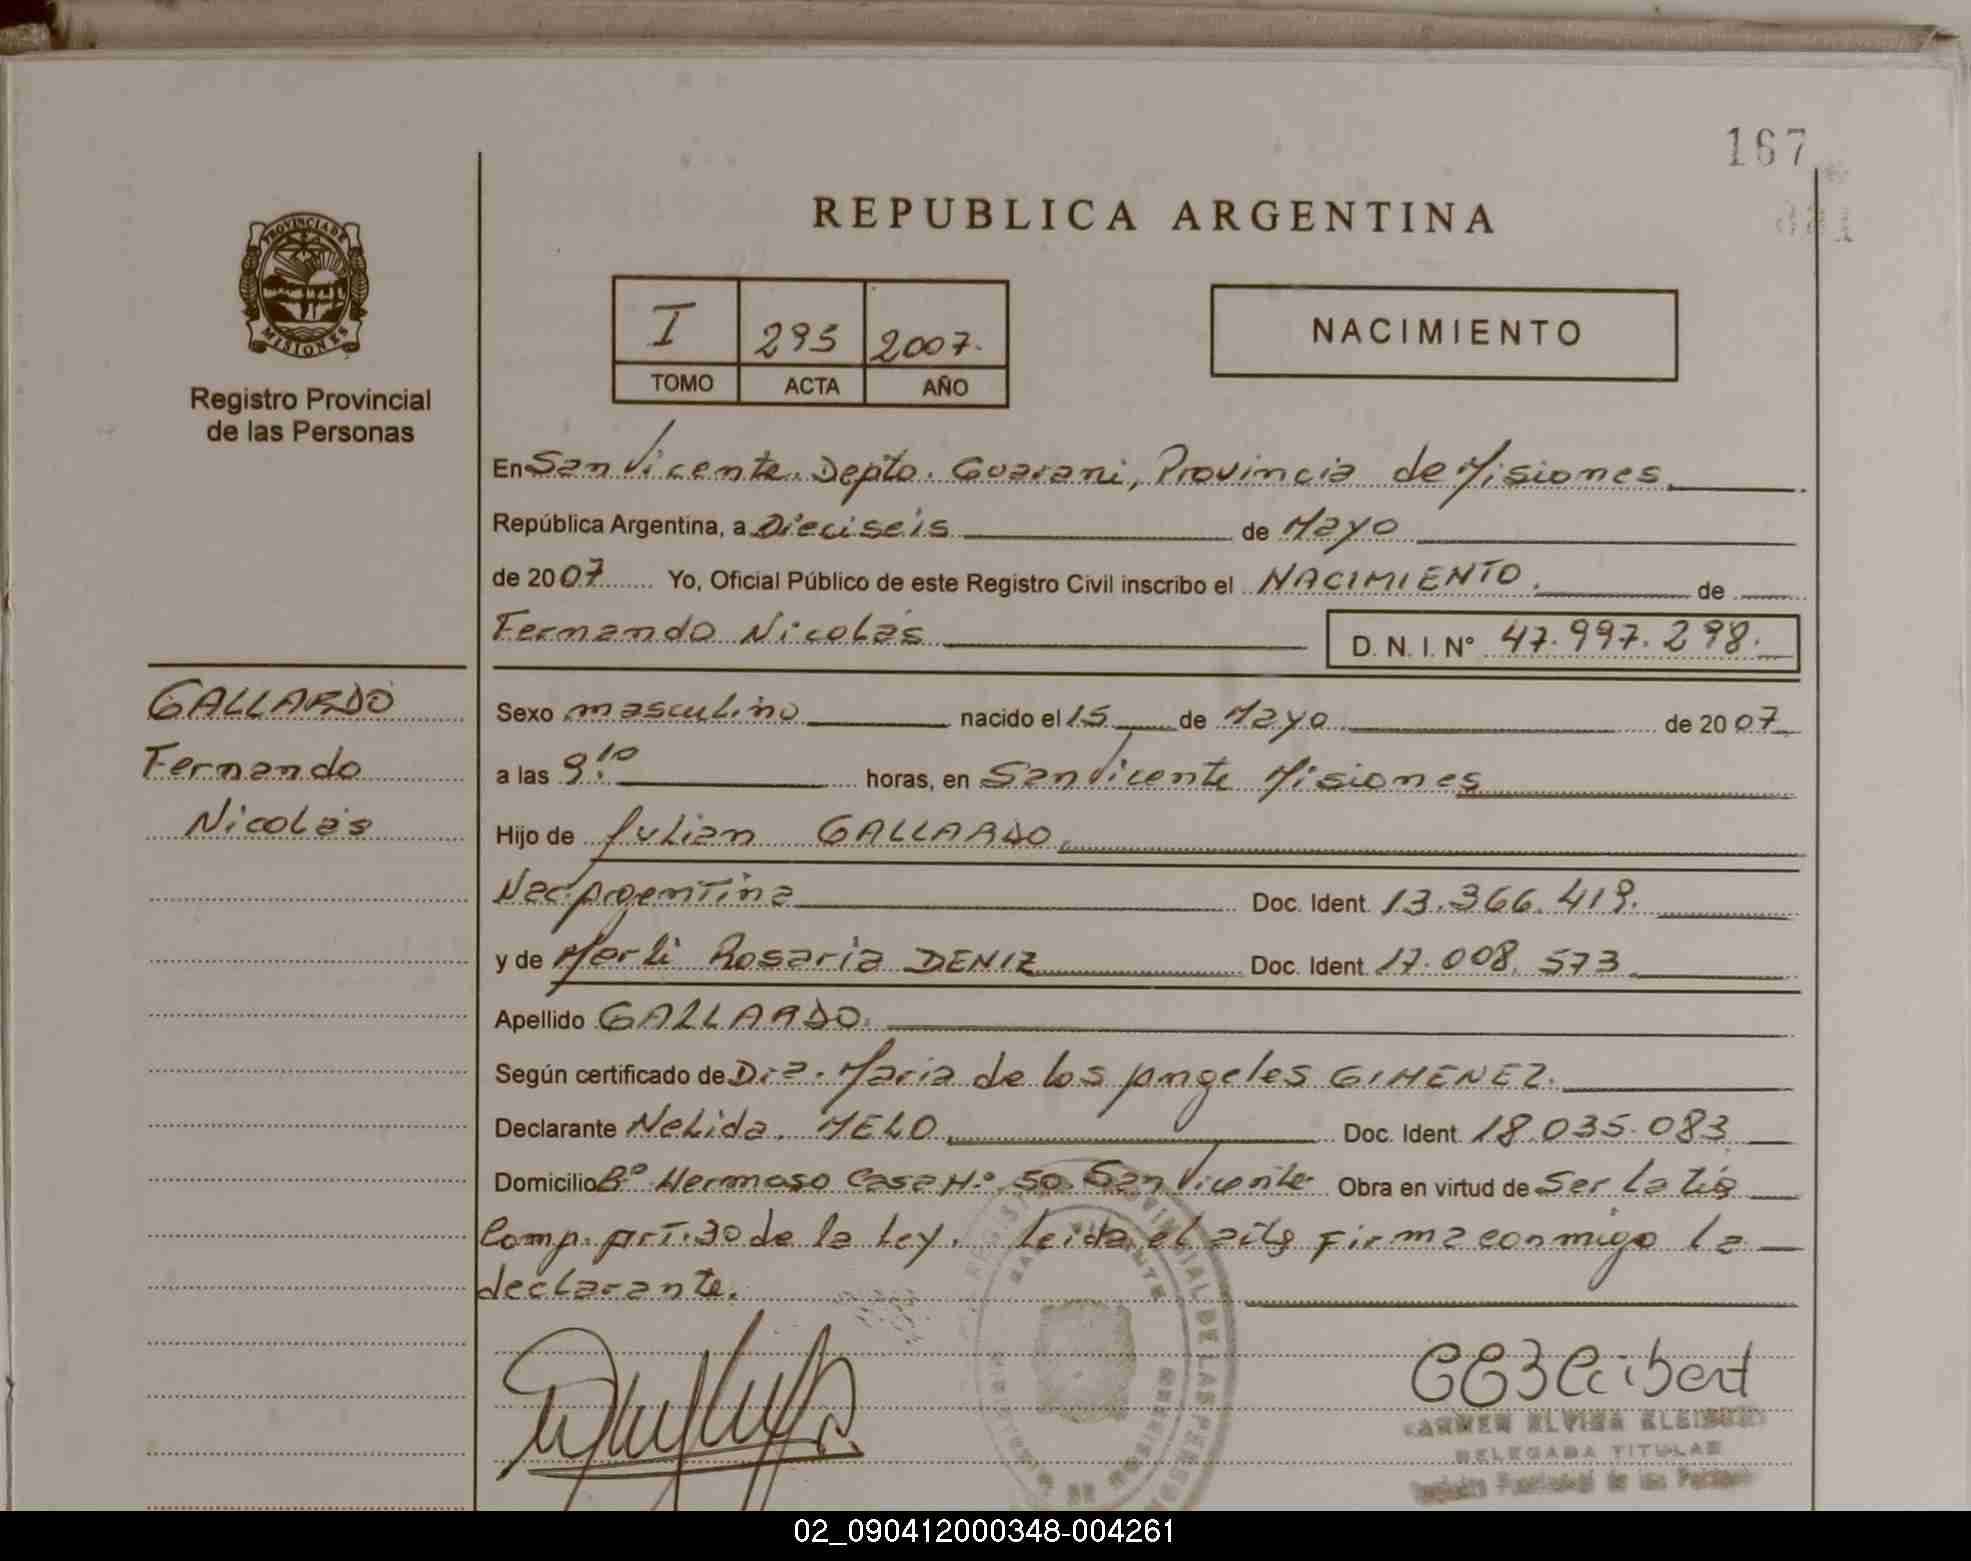 167
REPUBLICA ARGENTINA
PROVINCIA DE
MISIONES
Registro Provincial
de las Personas
I 295 2007.
TOMO ACTA AÑO
NACIMIENTO
En San Vicente. Depto. Guarani, Provincia de Misiones
República Argentina, a Dieciseis de Mayo
de 2007 Yo, Oficial Público de este Registro Civil inscribo el NACIMIENTO. de
Fernando Nicolás D. N. I. N° 47.997.298.
GALLARDO
Fernando
Nicolás
Sexo masculino nacido el 15 de Mayo de 2007
a las 9:10 horas, en San Vicente Misiones
Hijo de Julian GALLARDO
Nac. Argentina Doc. Ident. 13.366.419.
y de Merli Rosaria DENIZ Doc. Ident. 17.008.573
Apellido GALLARDO.
Según certificado de Dra. Maria de los Angeles GIMENEZ.
Declarante Nelida. MELO Doc. Ident. 18.035.083
Domicilio B° Hermoso Casa N.° 50. San Vicente Obra en virtud de Ser la tia
Comp. Art. 30 de la Ley. Leida el acta firma conmigo la
declarante.
CARMEN ELVIRA
DELEGADA TITULAR
Registro Provincial de las Personas
02_090412000348-004261